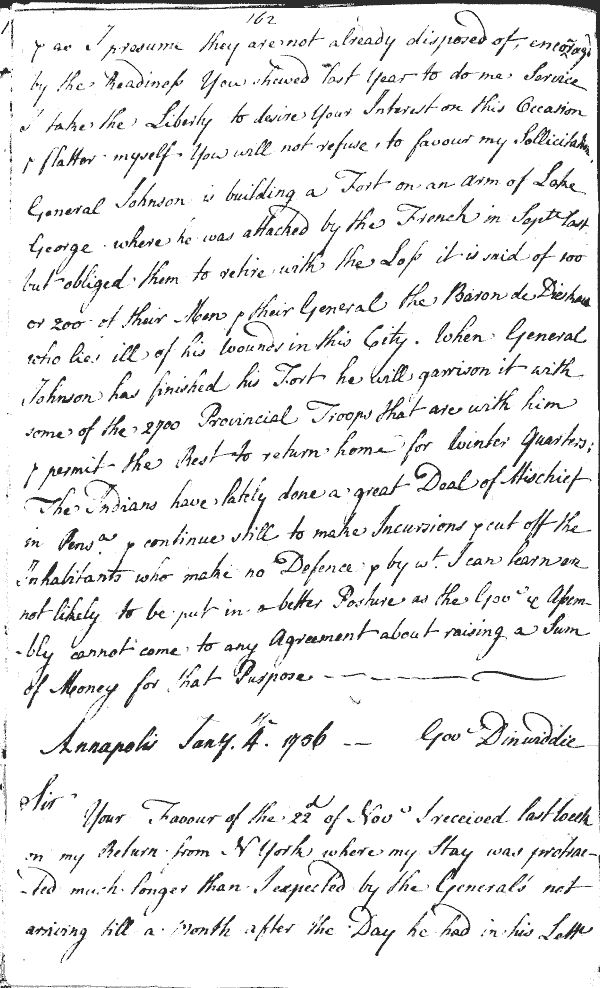 162
& as I presume they are not already disposed of, encorag'd
by the Readiness You shewed last Year to do me Service
I take the Liberty to desire Your Interest on this Occasion
& flatter myself You will not refuse to favour my Sollicitation,
General Johnson is building a Fort on an arm of Lake
George where he was attacked by the French in Septr. last
but obliged them to retire with the Loss it is said of 100
or 200 of their Men & their General the Baron de Dieskau
who lies ill of his wounds in this City. When General
Johnson has finished his Fort he will garrison it with
some of the 2700 Provincial Troops that are with him
& permit the Rest to return home for Winter Quarters;
The Indians have lately done a great Deal of Mischief
in Pensa. & continue still to make Incursions & cut off the
Inhabitants who make no Defence & by wt. I can learn are
not likely to be put in a better Posture as the Govr. & Assem-
-bly cannot come to any Agreement about raising a Sum
of Money for that Purpose
Annapolis Jany. 4th. 1756 — Govr. Dinwiddie
Sir
Your Favour of the 22d of Novr I received last Week
on my Return from N York where my Stay was protrac-
-ted much longer than I expected by the General's not
arriving till a Month after the Day he had in his Lettr